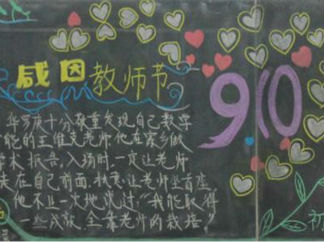 感因教师节
910
华罗庚十分敬重发现自己数学
才能的王维克老师。他在家乡做
学术报告,入场时,一定让老师
走在自己前面,执意让老师坐首座。
他不止一次地说过:“我能取得
一些成就,全靠老师的栽培。”
祝